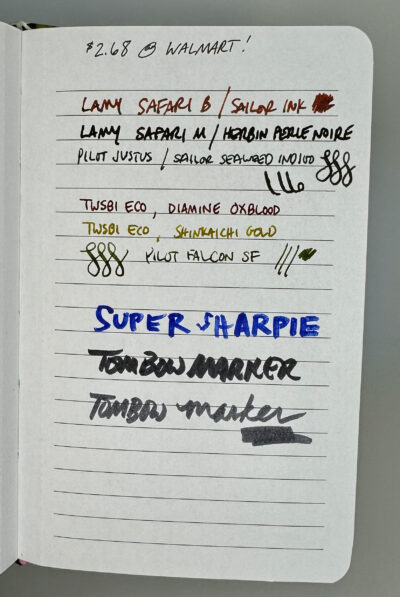 $2.68 @ WALMART!
LAMY SAFARI B / SAILOR INK
LAMY SAFARI M / HERBIN PERLE NOIRE
PILOT JUSTUS / SAILOR SEAWEED INDIGO
TWSBI ECO, DIAMINE OXBLOOD
TWSBI ECO, SHINKAICHI GOLD
PILOT FALCON SF
SUPER SHARPIE
TOMBOW MARKER
TOMBOW marker